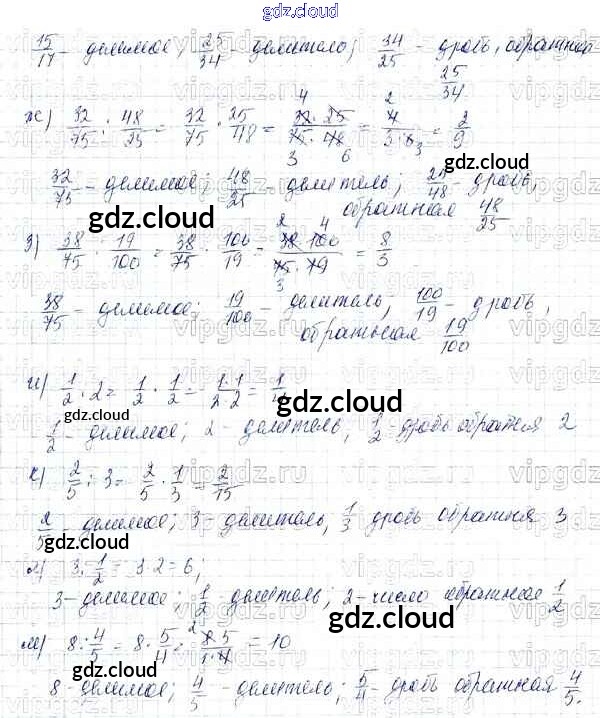 gdz.cloud
15/17 - делимое; 25/34 - делитель; 34/25 - дробь, обратная 25/34
ж) 32/75 : 48/25 = 32/75 · 25/48 = 32·25/75·48 = 4/3·6 = 2/9
32/75 - делимое; 48/25 - делитель; 25/48 - дробь,
обратная 48/25
gdz.cloud
з) 38/75 : 19/100 = 38/75 · 100/19 = 38·100/75·19 = 8/3
38/75 - делимое; 19/100 - делитель; 100/19 - дробь,
обратная 19/100
и) 1/2 : 2 = 1/2 · 1/2 = 1·1/2·2 = 1/4
gdz.cloud
1/2 - делимое; 2 - делитель, 1/2 - дробь обратная 2
к) 2/5 : 3 = 2/5 · 1/3 = 2/15
2/5 - делимое; 3 - делитель, 1/3 дробь обратная 3
gdz.cloud
л) 3 : 1/2 = 3·2 = 6;
3 - делимое; 1/2 - делитель; 2 - число обратное 1/2
gdz.cloud
м) 8 : 4/5 = 8 · 5/4 = 8·5/1·4 = 10
8 - делимое; 4/5 - делитель; 5/4 - дробь обратная 4/5.
gdz.cloud